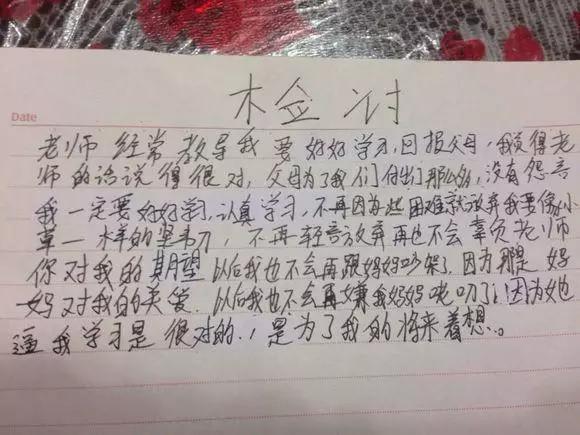 检讨
Date
老师 经常 教导我 要 好好 学习，回报父母，我觉得老
师的话说 得 很 对，父母为了我们付出们那么多，没有 怨言
我一定要好好学习，认真学习，不再因为些困难就放弃我要像小
草一样的坚韧，不再轻言放弃再也不会辜负老师
你对我的期望 以后我也不会再跟妈妈吵架了，因为那是 妈
妈对我的关爱。以后我也不会再嫌我妈妈唠叨了，因为她
逼 我 学习是 很对的，是为了我的将来着想。